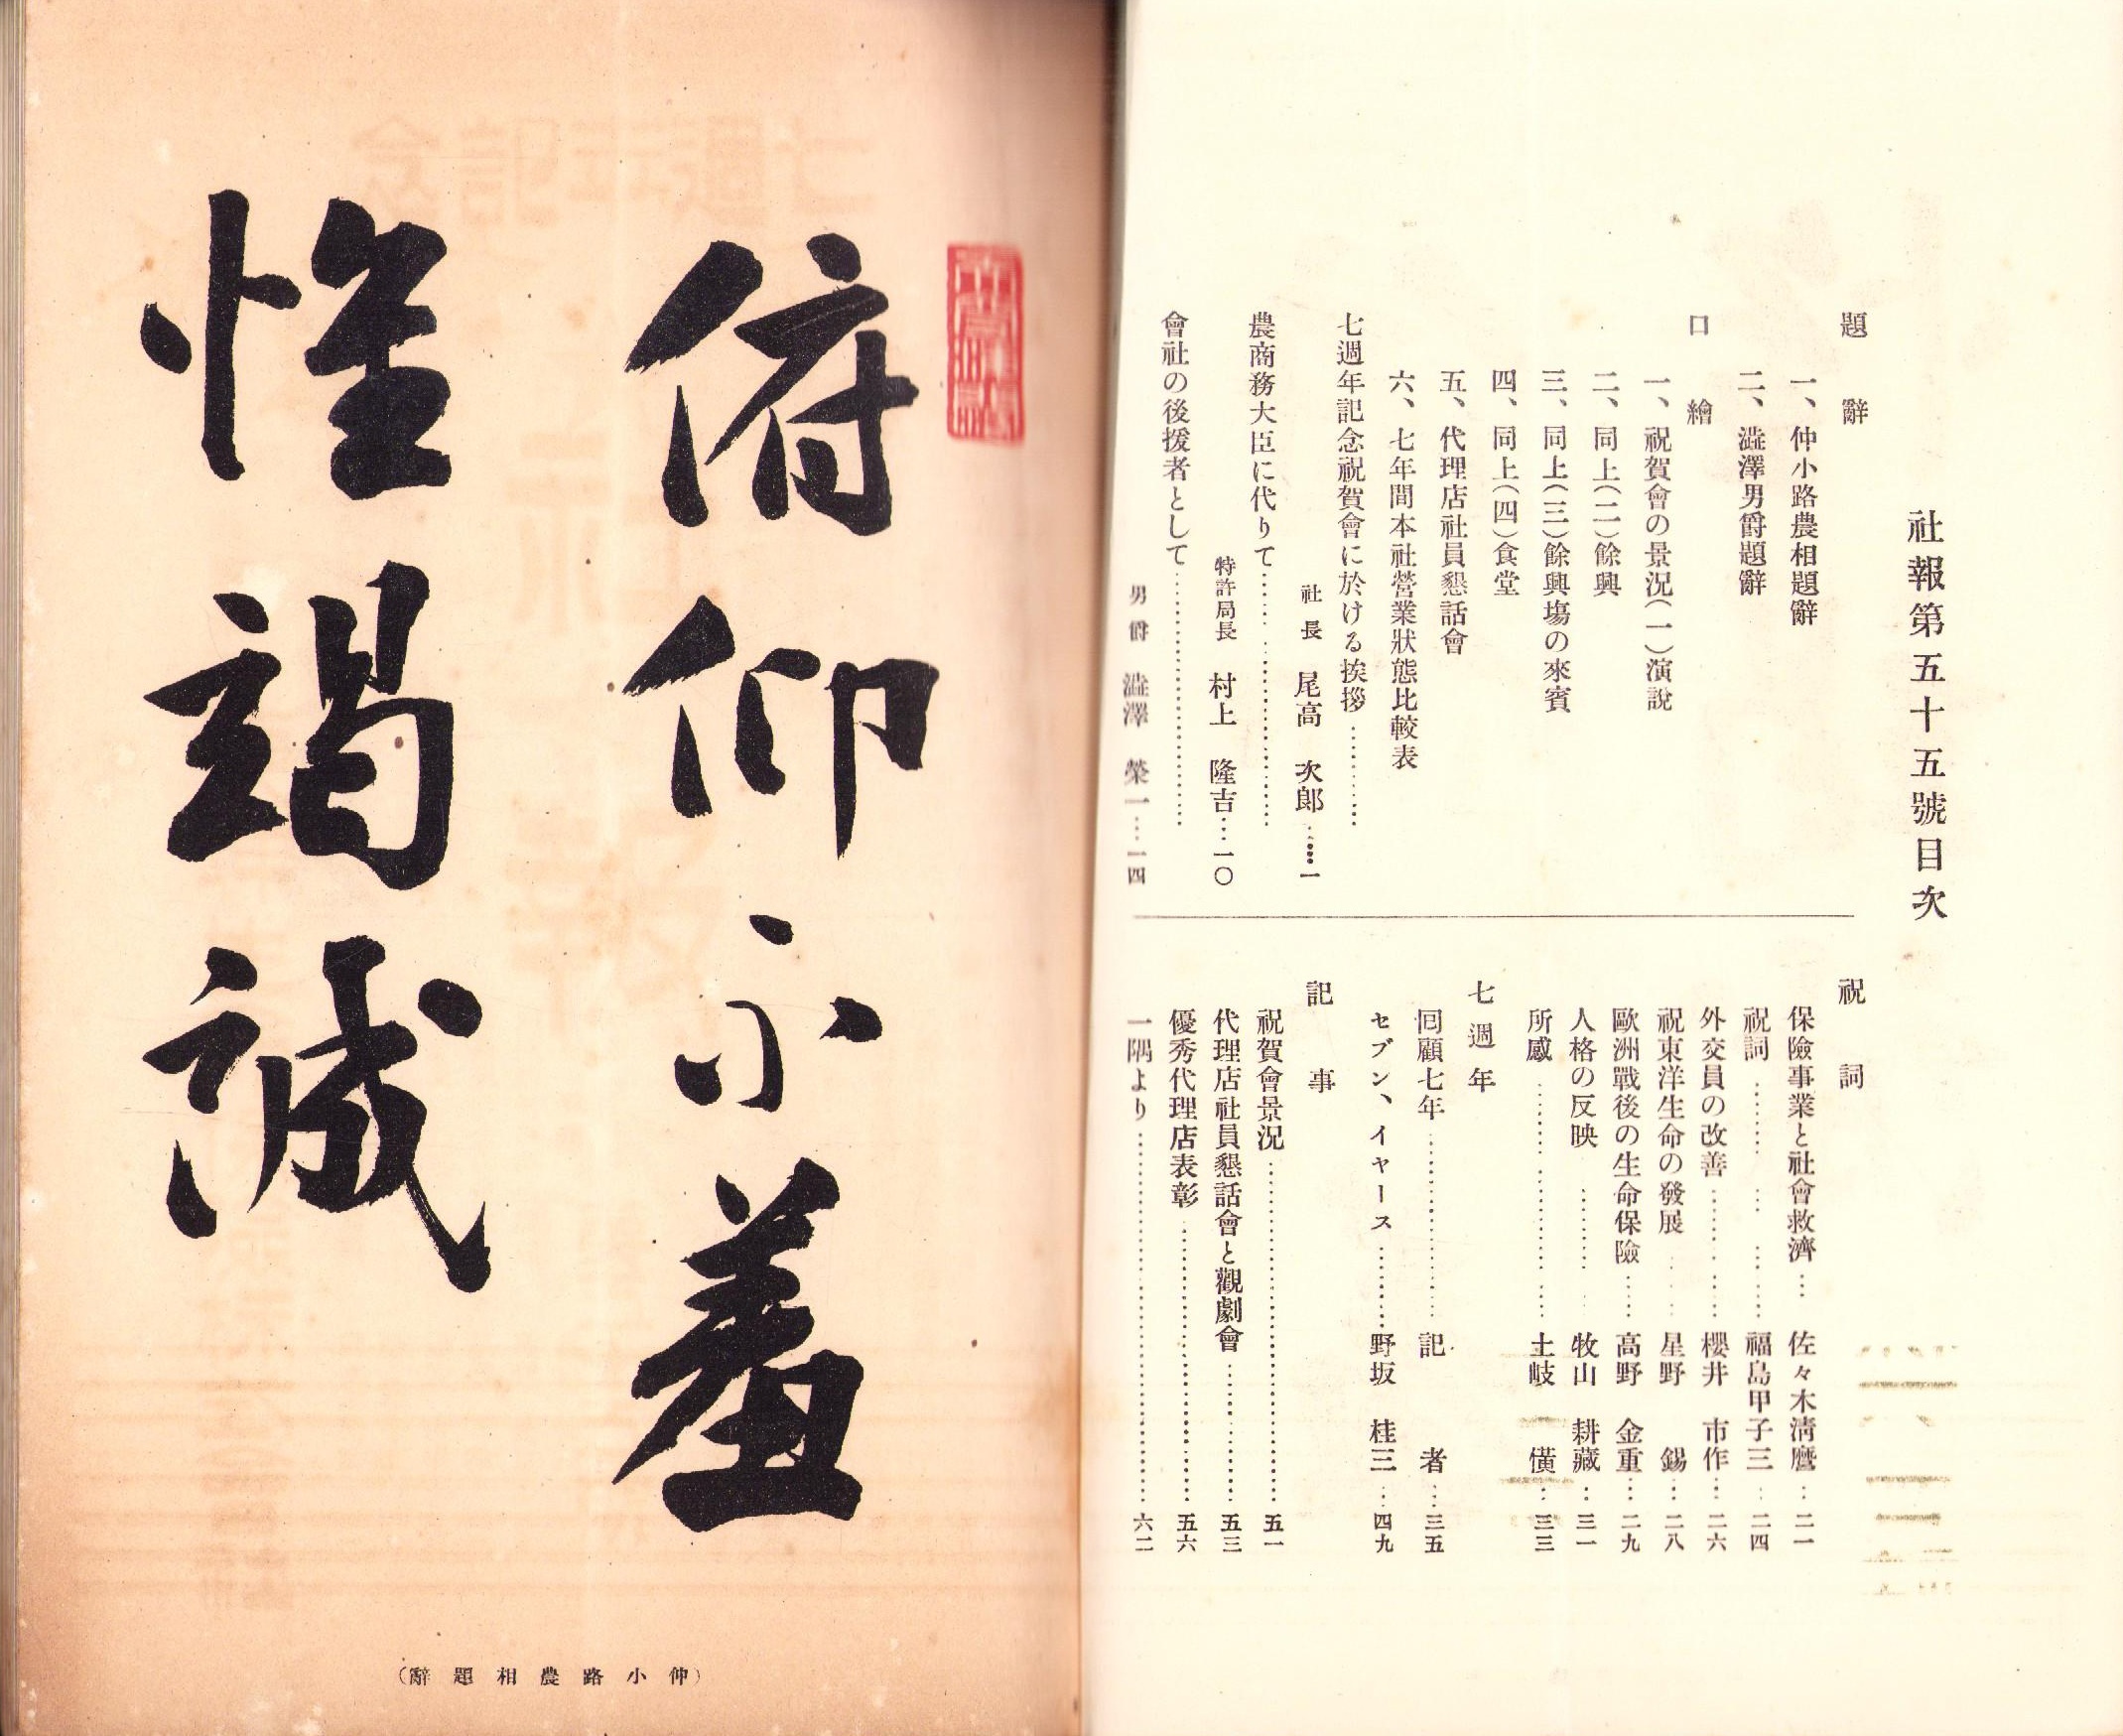 社報第五十五號目次
題辭
一、仲小路農相題辭
二、澁澤男爵題辭
口繪
一、祝賀會の景況(一)演說
二、同上(二)餘興
三、同上(三)餘興塲の來賓
四、同上(四)食堂
五、代理店社員懇話會
六、七年間本社營業狀態比較表
七週年記念祝賀會に於ける挨拶…………
社長 尾高 次郞……一
農商務大臣に代りて…………………
特許局長 村上 隆吉…一〇
會社の後援者として…………………
男爵 澁澤 榮一…一四
祝詞
保險事業と社會救濟… 佐々木淸麿…二一
祝詞………………… 福島甲子三…二四
外交員の改善………… 櫻井 市作…二六
祝東洋生命の發展…… 星野 錫…二八
歐洲戰後の生命保險…… 高野 金重…二九
人格の反映………… 牧山 耕藏…三一
所感………………… 土岐 僙…三三
七週年
囘顧七年………………… 記者…三五
セブン、イヤース………… 野坂 桂三…四九
記事
祝賀會景況…………………………五一
代理店社員懇話會と觀劇會…………五三
優秀代理店表彰……………………五六
一隅より…………………………六二
俯仰不羞
惟竭誠
(仲小路農相題辭)